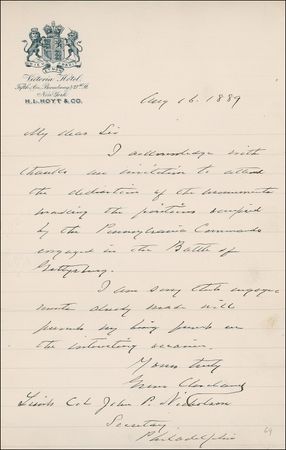 Victoria Hotel,
Fifth Av. Broadway & 27th St.
New York.
H.L. HOYT & CO.
Aug 16. 1889
My dear Sir
I acknowledge with
thanks an invitation to attend
the dedication of the monuments
marking the positions occupied
by the Pennsylvania Commands
engaged in the Battle of
Gettysburg.
I am sorry that engage-
ments already made will
prevent my being present on
the interesting occasion.
Yours truly
Grover Cleveland
Lieut Col John P. Nicholson
Secretary
Philadelphia